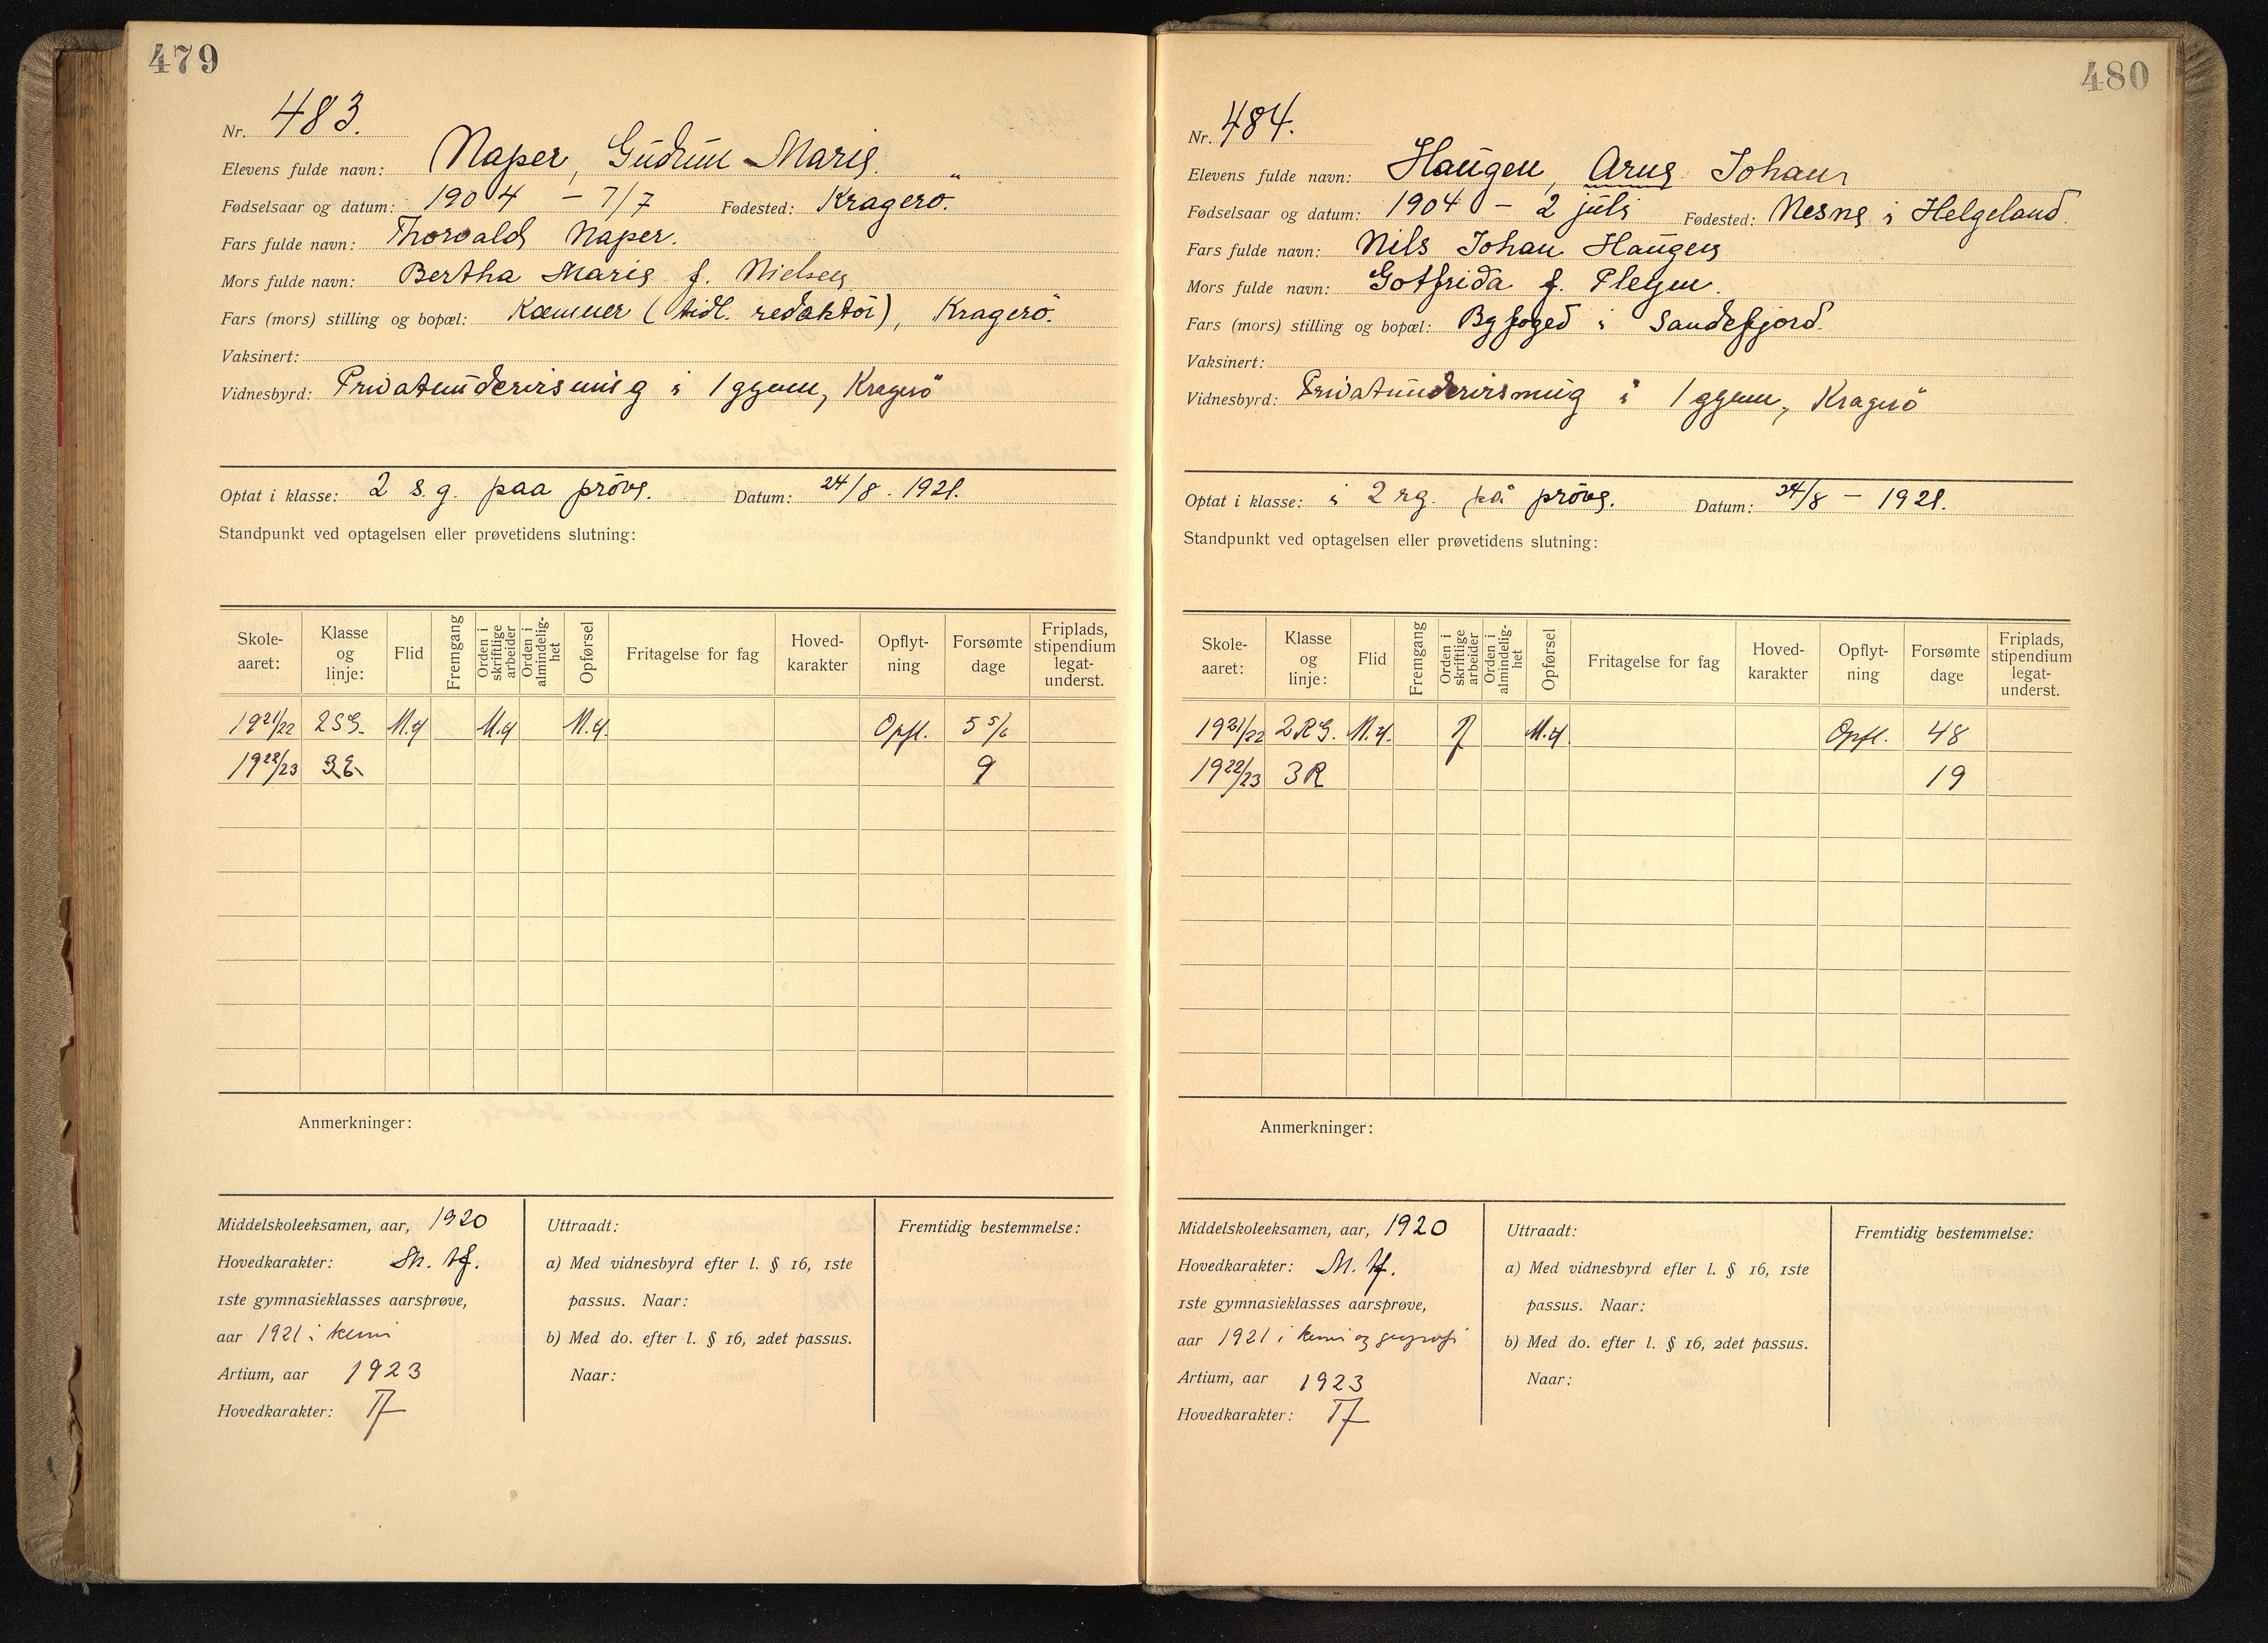 479
Nr. 483.
Elevens fulde navn: Naper, Gudrun Marie.
Fødselsaar og datum: 1904 - 7/7 Fødested: Kragerö.
Fars fulde navn: Thorvald Naper.
Mors fulde navn: Bertha Marie f. Nielsen
Fars (mors) stilling og bopæl: Kæmner (tidl. redaktör), Kragerö.
Vaksinert:
Vidnesbyrd: Privatundervisning i 1 ggymn, Kragerö
Optat i klasse: 2 s.g. paa pröve. Datum: 24/8. 1921.
Standpunkt ved optagelsen eller prøvetidens slutning:
Skole-aaret: Klasse og linje: Flid Fremgang Orden i skriftlige arbeider Orden i almindelig-het Opførsel Fritagelse for fag Hoved-karakter Opflyt-ning Forsømte dage Friplads, stipendium legat-underst.
1921/22 2SG. M.g M.g M.g. Opfl. 5 5/6
1922/23 3E. 9
Anmerkninger:
Middelskoleeksamen, aar, 1920
Hovedkarakter: M. tf.
1ste gymnasieklasses aarsprøve,
aar 1921 i kemi
Artium, aar 1923
Hovedkarakter: Tf
Uttraadt:
a) Med vidnesbyrd efter l. § 16, 1ste
passus. Naar:
b) Med do. efter l. § 16, 2det passus.
Naar:
Fremtidig bestemmelse:
480
Nr. 484.
Elevens fulde navn: Haugen, Arne Johan
Fødselsaar og datum: 1904 - 2 juli Fødested: Nesne i Helgeland.
Fars fulde navn: Nils Johan Haugen
Mors fulde navn: Gotfrida f. Pleym.
Fars (mors) stilling og bopæl: Byfoged i Sandefjord.
Vaksinert:
Vidnesbyrd: Privatundervisning i 1 ggymn, Kragerö
Optat i klasse: i 2 rg. på pröve. Datum: 24/8 - 1921.
Standpunkt ved optagelsen eller prøvetidens slutning:
Skole-aaret: Klasse og linje: Flid Fremgang Orden i skriftlige arbeider Orden i almindelig-het Opførsel Fritagelse for fag Hoved-karakter Opflyt-ning Forsømte dage Friplads, stipendium legat-underst.
1921/22 2RG. M.g. M.g. Opfl. 48
1922/23 3R 19
Anmerkninger:
Middelskoleeksamen, aar, 1920
Hovedkarakter: M. tf.
1ste gymnasieklasses aarsprøve,
aar 1921 i kemi og geografi
Artium, aar 1923
Hovedkarakter: Tf
Uttraadt:
a) Med vidnesbyrd efter l. § 16, 1ste
passus. Naar:
b) Med do. efter l. § 16, 2det passus.
Naar:
Fremtidig bestemmelse: